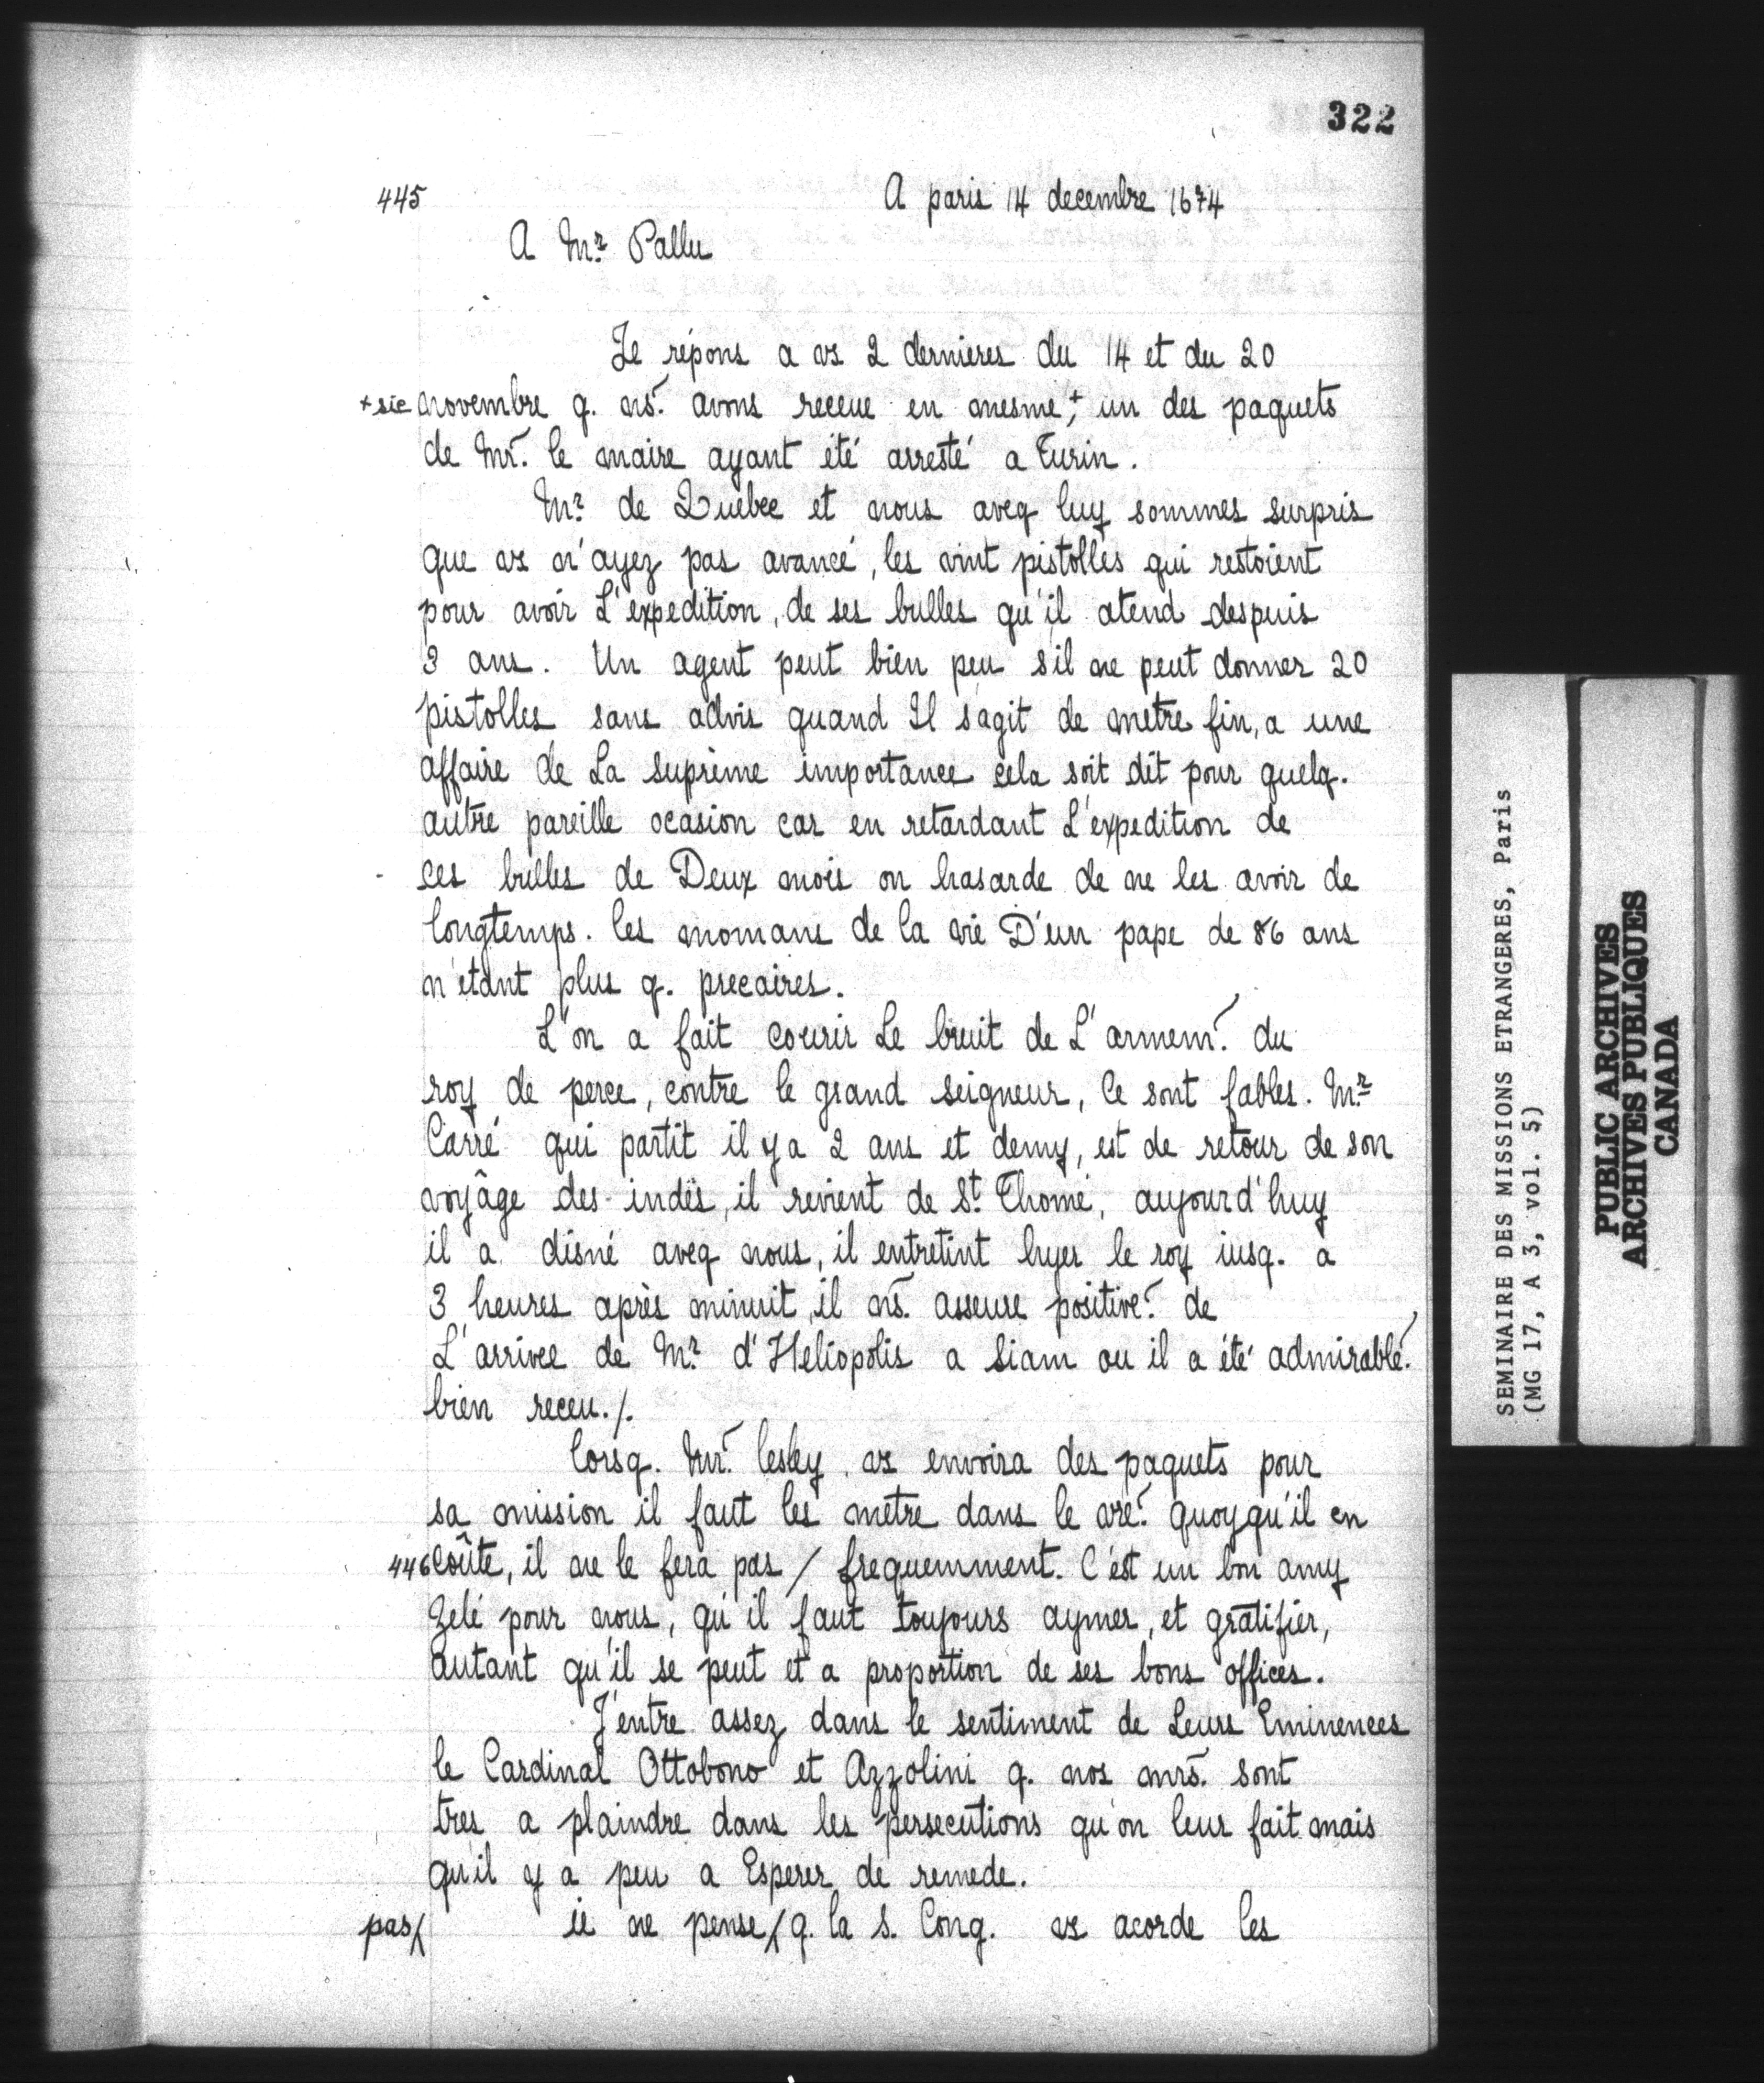 322
445 A paris 14 decembre 1674
A Mr. Pallu
Je répons a vs 2 dernieres du 14 et du 20
+ sic novembre q. ns. avons receue en mesme + un des paquets
de Mr. le maire ayant été arresté a Turin.
Mr. de Quebec et nous aveq luy sommes surpris
que vs n'ayez pas avancé, les vint pistolles qui restoient
pour avoir L'expedition, de ses bulles qu'il atend despuis
3 ans. Un agent peut bien peu s'il ne peut donner 20
pistolles sans advis quand Il s'agit de metre fin, a une
affaire de La suprème importance cela soit dit pour quelq.
autre pareille ocasion car en retardant L'expedition de
ces bulles de Deux mois on hasarde de ne les avoir de
longtemps. les momans de la vie D'un pape de 86 ans
n'etant plus q. precaires.
L'on a fait courir Le bruit de L'armem.t du
roy de perce, contre le grand seigneur, Ce sont fables. Mr.
Carré qui partit il y a 2 ans et demy, est de retour de son
voyâge des indes, il revient de St. Thomé, aujourd'huy
il a disné aveq nous, il entretint hyer le roy iusq. a
3 heures après minuit, il ns. asseure positive.t de
L'arrivee de Mr. d'Heliopolis a Siam ou il a été admirable.t
bien receu./.
lorsq. Mr. lesley vs envoira des paquets pour
sa mission il faut les metre dans le vre. quoyqu'il en
446 coûte, il ne le fera pas / frequemment. C'est un bon amy
zelé pour nous, qu'il faut toujours aymer, et gratifier,
autant qu'il se peut et a proportion de ses bons offices.
J'entre assez dans le sentiment de Leurs Eminences
le Cardinal Ottobono et Azzolini q. nos mrs. sont
tres a plaindre dans les persecutions qu'on leur fait mais
qu'il y a peu a Esperer de remede.
pas/ ie ne pense / q. la S. Cong. vs acorde les
SEMINAIRE DES MISSIONS ETRANGERES, Paris
(MG 17, A 3, vol. 5)
PUBLIC ARCHIVES
ARCHIVES PUBLIQUES
CANADA